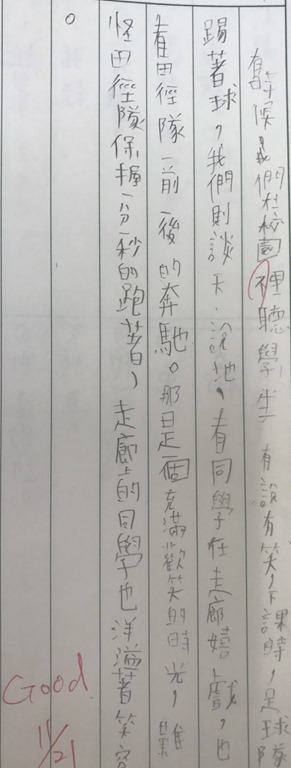 有時候，我們在校園裡聽學生有說有笑，下課時，足球隊
踢著球，我們則談天說地，有同學在走廊嬉戲，也
有田徑隊一前一後的奔馳。那是個充滿歡笑的時光，難
怪田徑隊保握一分一秒的跑著，走廊上的同學也洋溢著笑容
。
Good
11/21